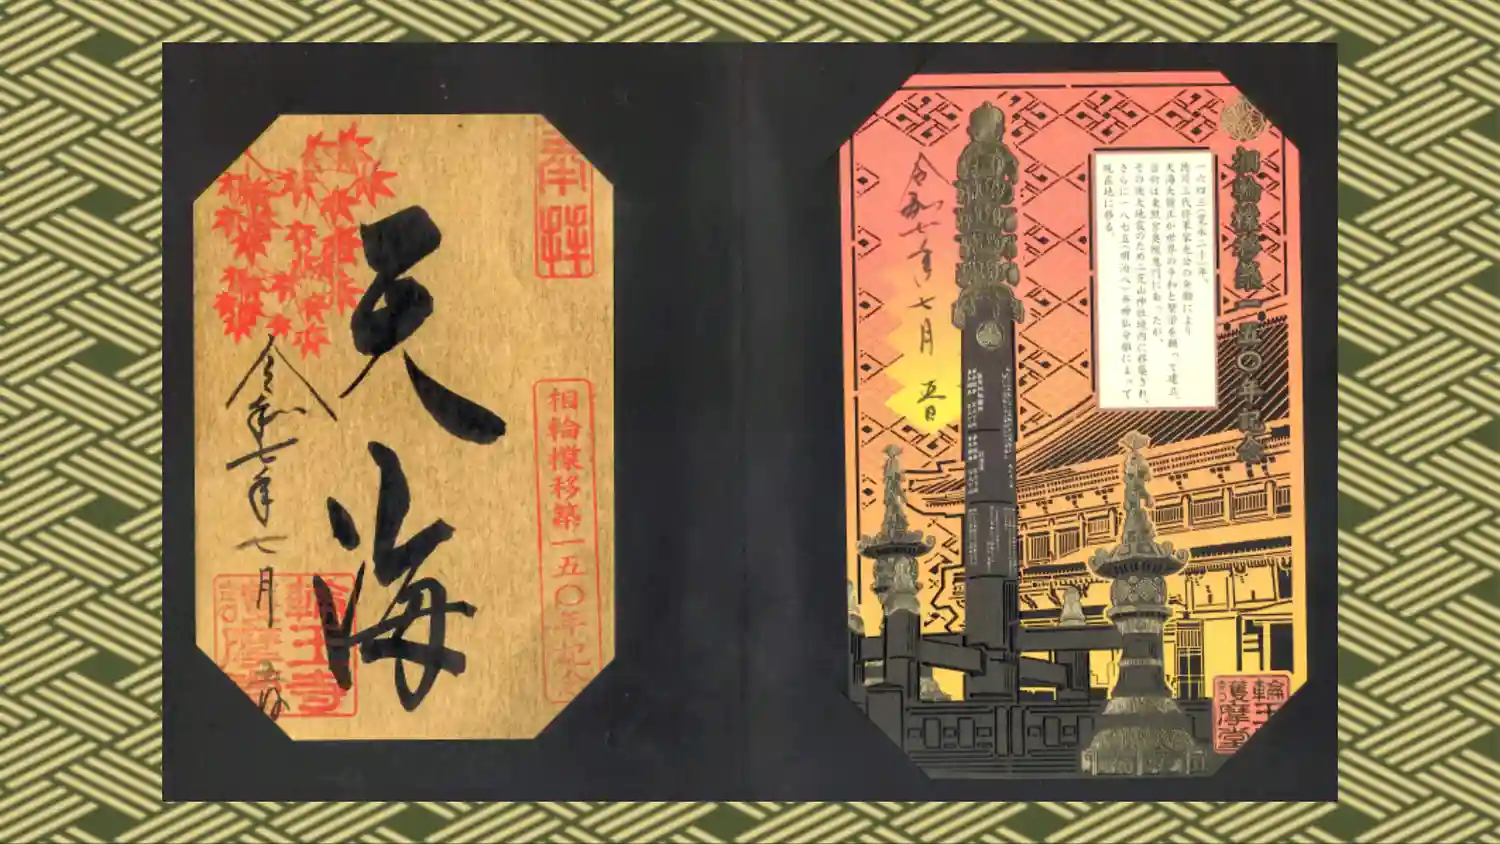 奉拝
天海
相輪橖移築一五〇年記念
令和七年七月五日
輪王寺
護摩堂
相輪橖移築一五〇年記念
一六四三(寛永二十)年、
徳川三代将軍家光公の発願により
天海大僧正が世界の平和と繁栄を願って建立。
当初は東照宮奥院鬼門にあったが、
その後大地震のため二荒山神社境内に移築され、
さらに一八七五(明治八)年神仏分離によって
現在地に移る。
令和七年七月五日
輪王寺
護摩堂